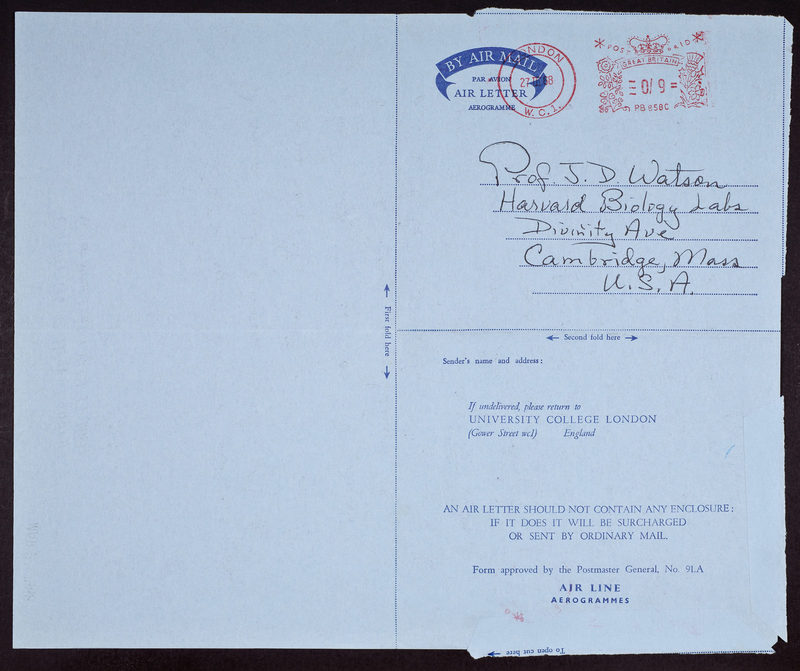 BY AIR MAIL
PAR AVION
AIR LETTER
AEROGRAMME
LONDON
W.C.1.
POST PAID
GREAT BRITAIN
0/9
PB 85BC
Prof. J. D. Watson
Harvard Biology Labs
Divinity Ave
Cambridge, Mass
U.S.A.
First fold here
Second fold here
Sender's name and address:
If undelivered, please return to
UNIVERSITY COLLEGE LONDON
(Gower Street wc1) England
AN AIR LETTER SHOULD NOT CONTAIN ANY ENCLOSURE;
IF IT DOES IT WILL BE SURCHARGED
OR SENT BY ORDINARY MAIL.
Form approved by the Postmaster General, No. 91.A
AIR LINE
AEROGRAMMES
To open cut here